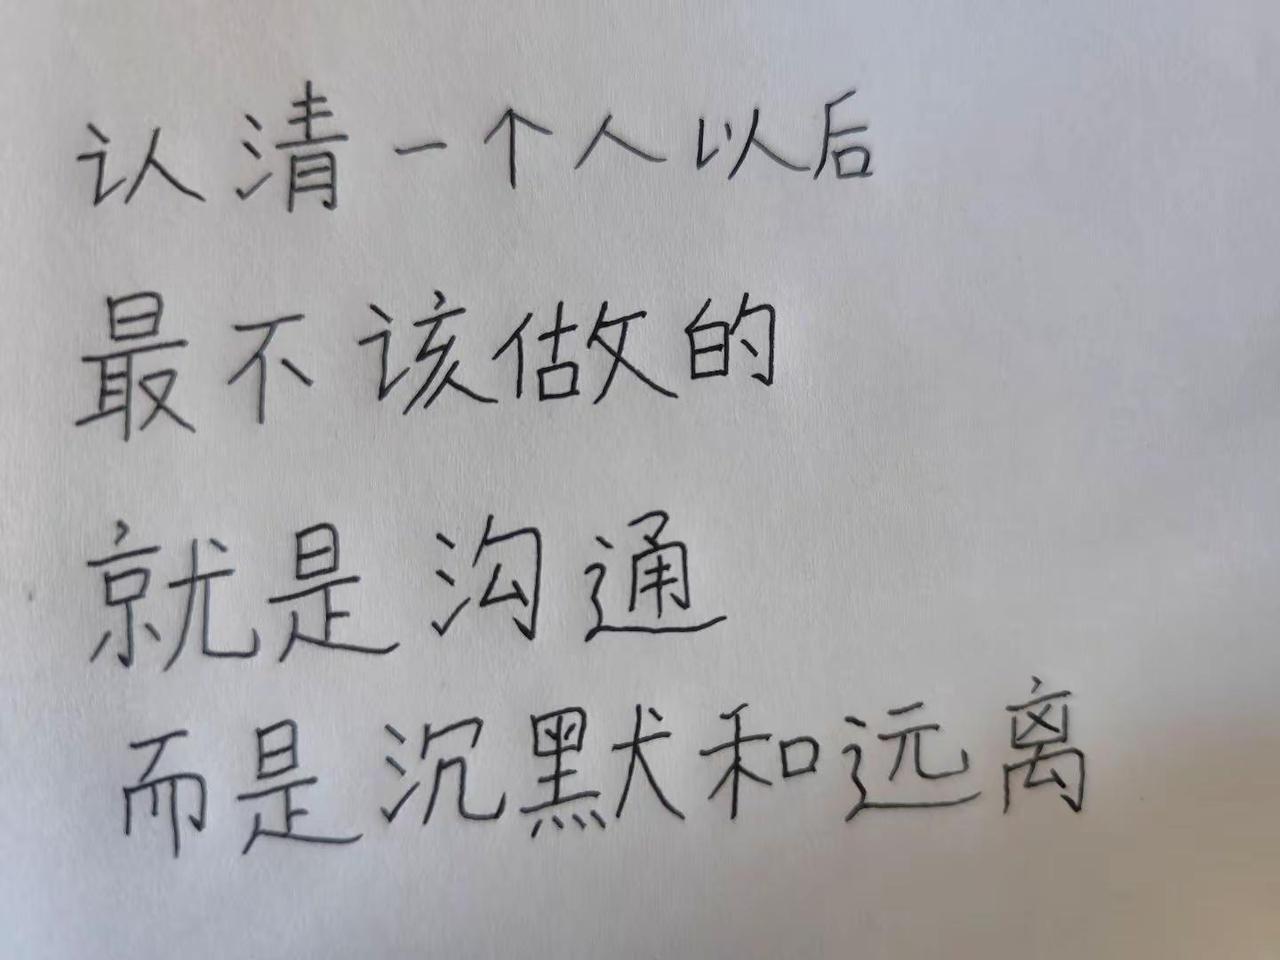 认清一个人以后
最不该做的
就是沟通
而是沉默和远离